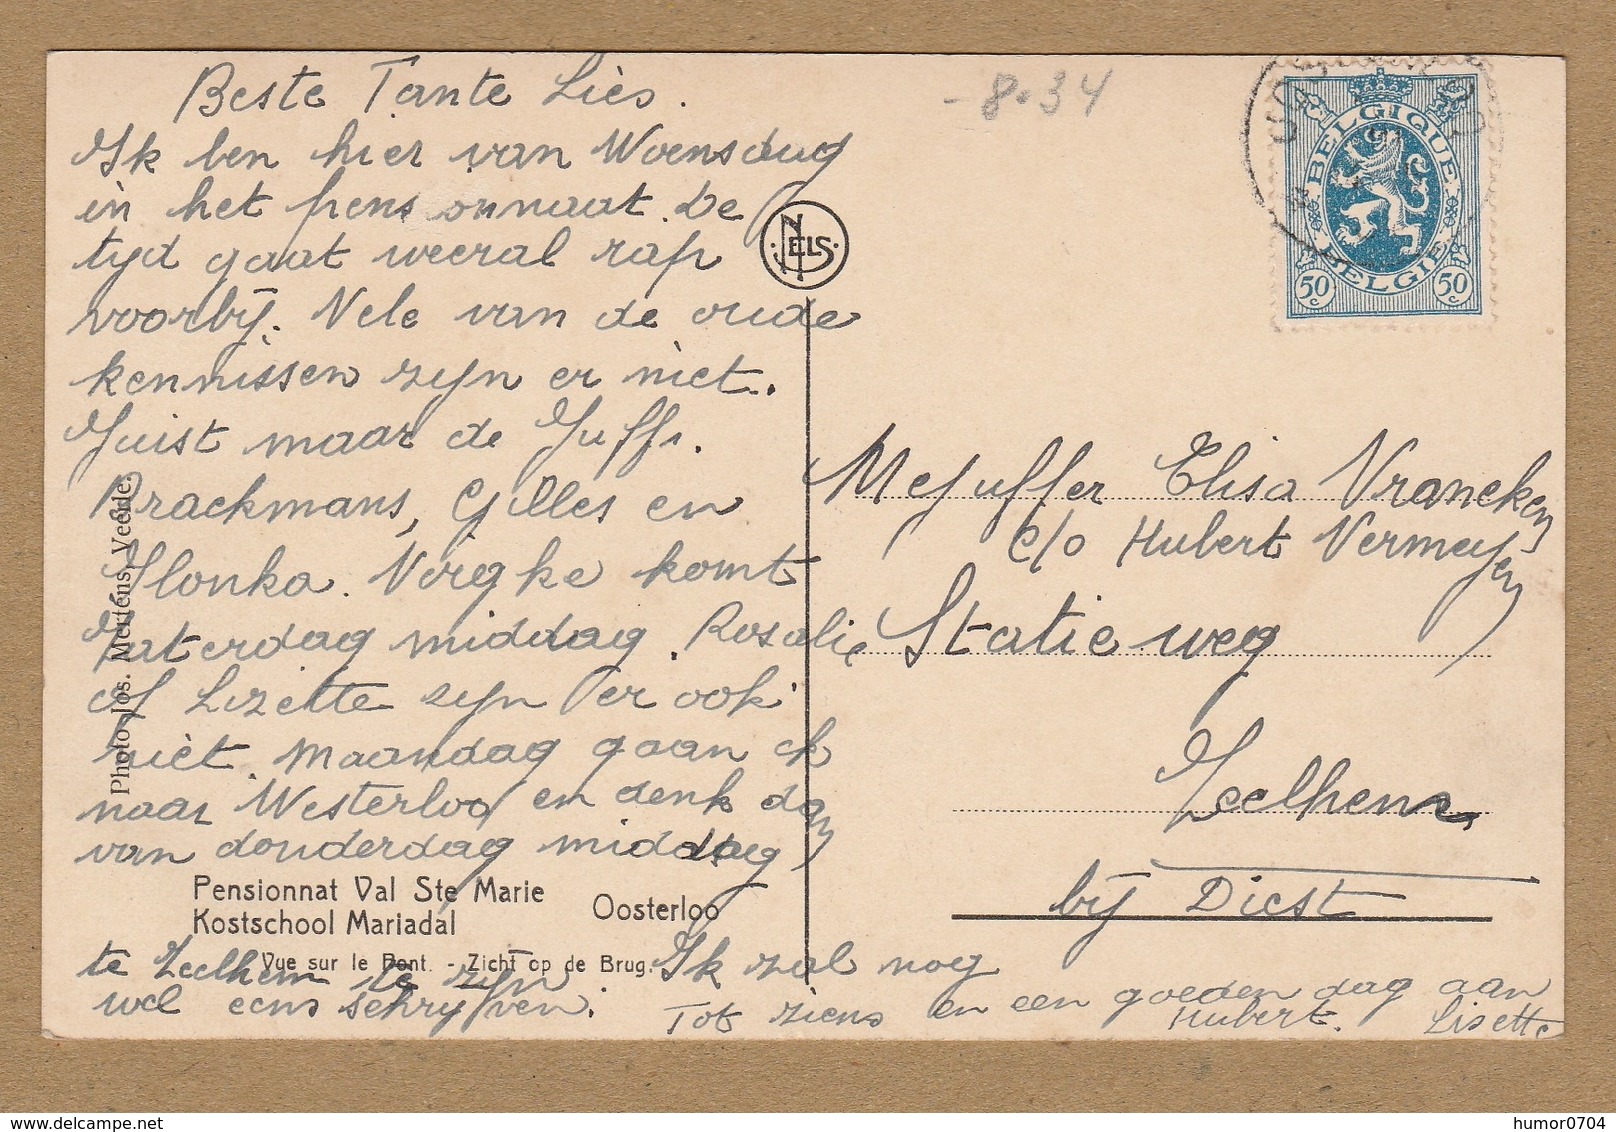 Beste Tante Liès.
Ik ben hier van Woensdag
in het pensionnaat. De
tijd gaat weeral rap
voorbij. Vele van de oude
kennissen zijn er niet.
Juist maar de Juffr.
Brackmans, Gilles en
Ilonka. komt
Zaterdag middag. Rosalie
of Lizette zijn er ook
niet. Maandag gaan ik
naar Westerloo en denk dan
van donderdag middag
te Zeelhem te zijn
Ik zal nog
wel eens schrijven.
Tot ziens en een goeden dag aan
Hubert. Lisette
- 8.34
BELGIQUE
BELGIE
50 c
50 c
NELS
Mejuffer Elisa Vrancken
c/o Hubert Vermeyen
Statieweg
Zeelhem
bij Diest
Photo Jos. Mertens, Veerde.
Pensionnat Val Ste Marie
Kostschool Mariadal
Oosterloo
Vue sur le Pont. - Zicht op de Brug.
humor0704